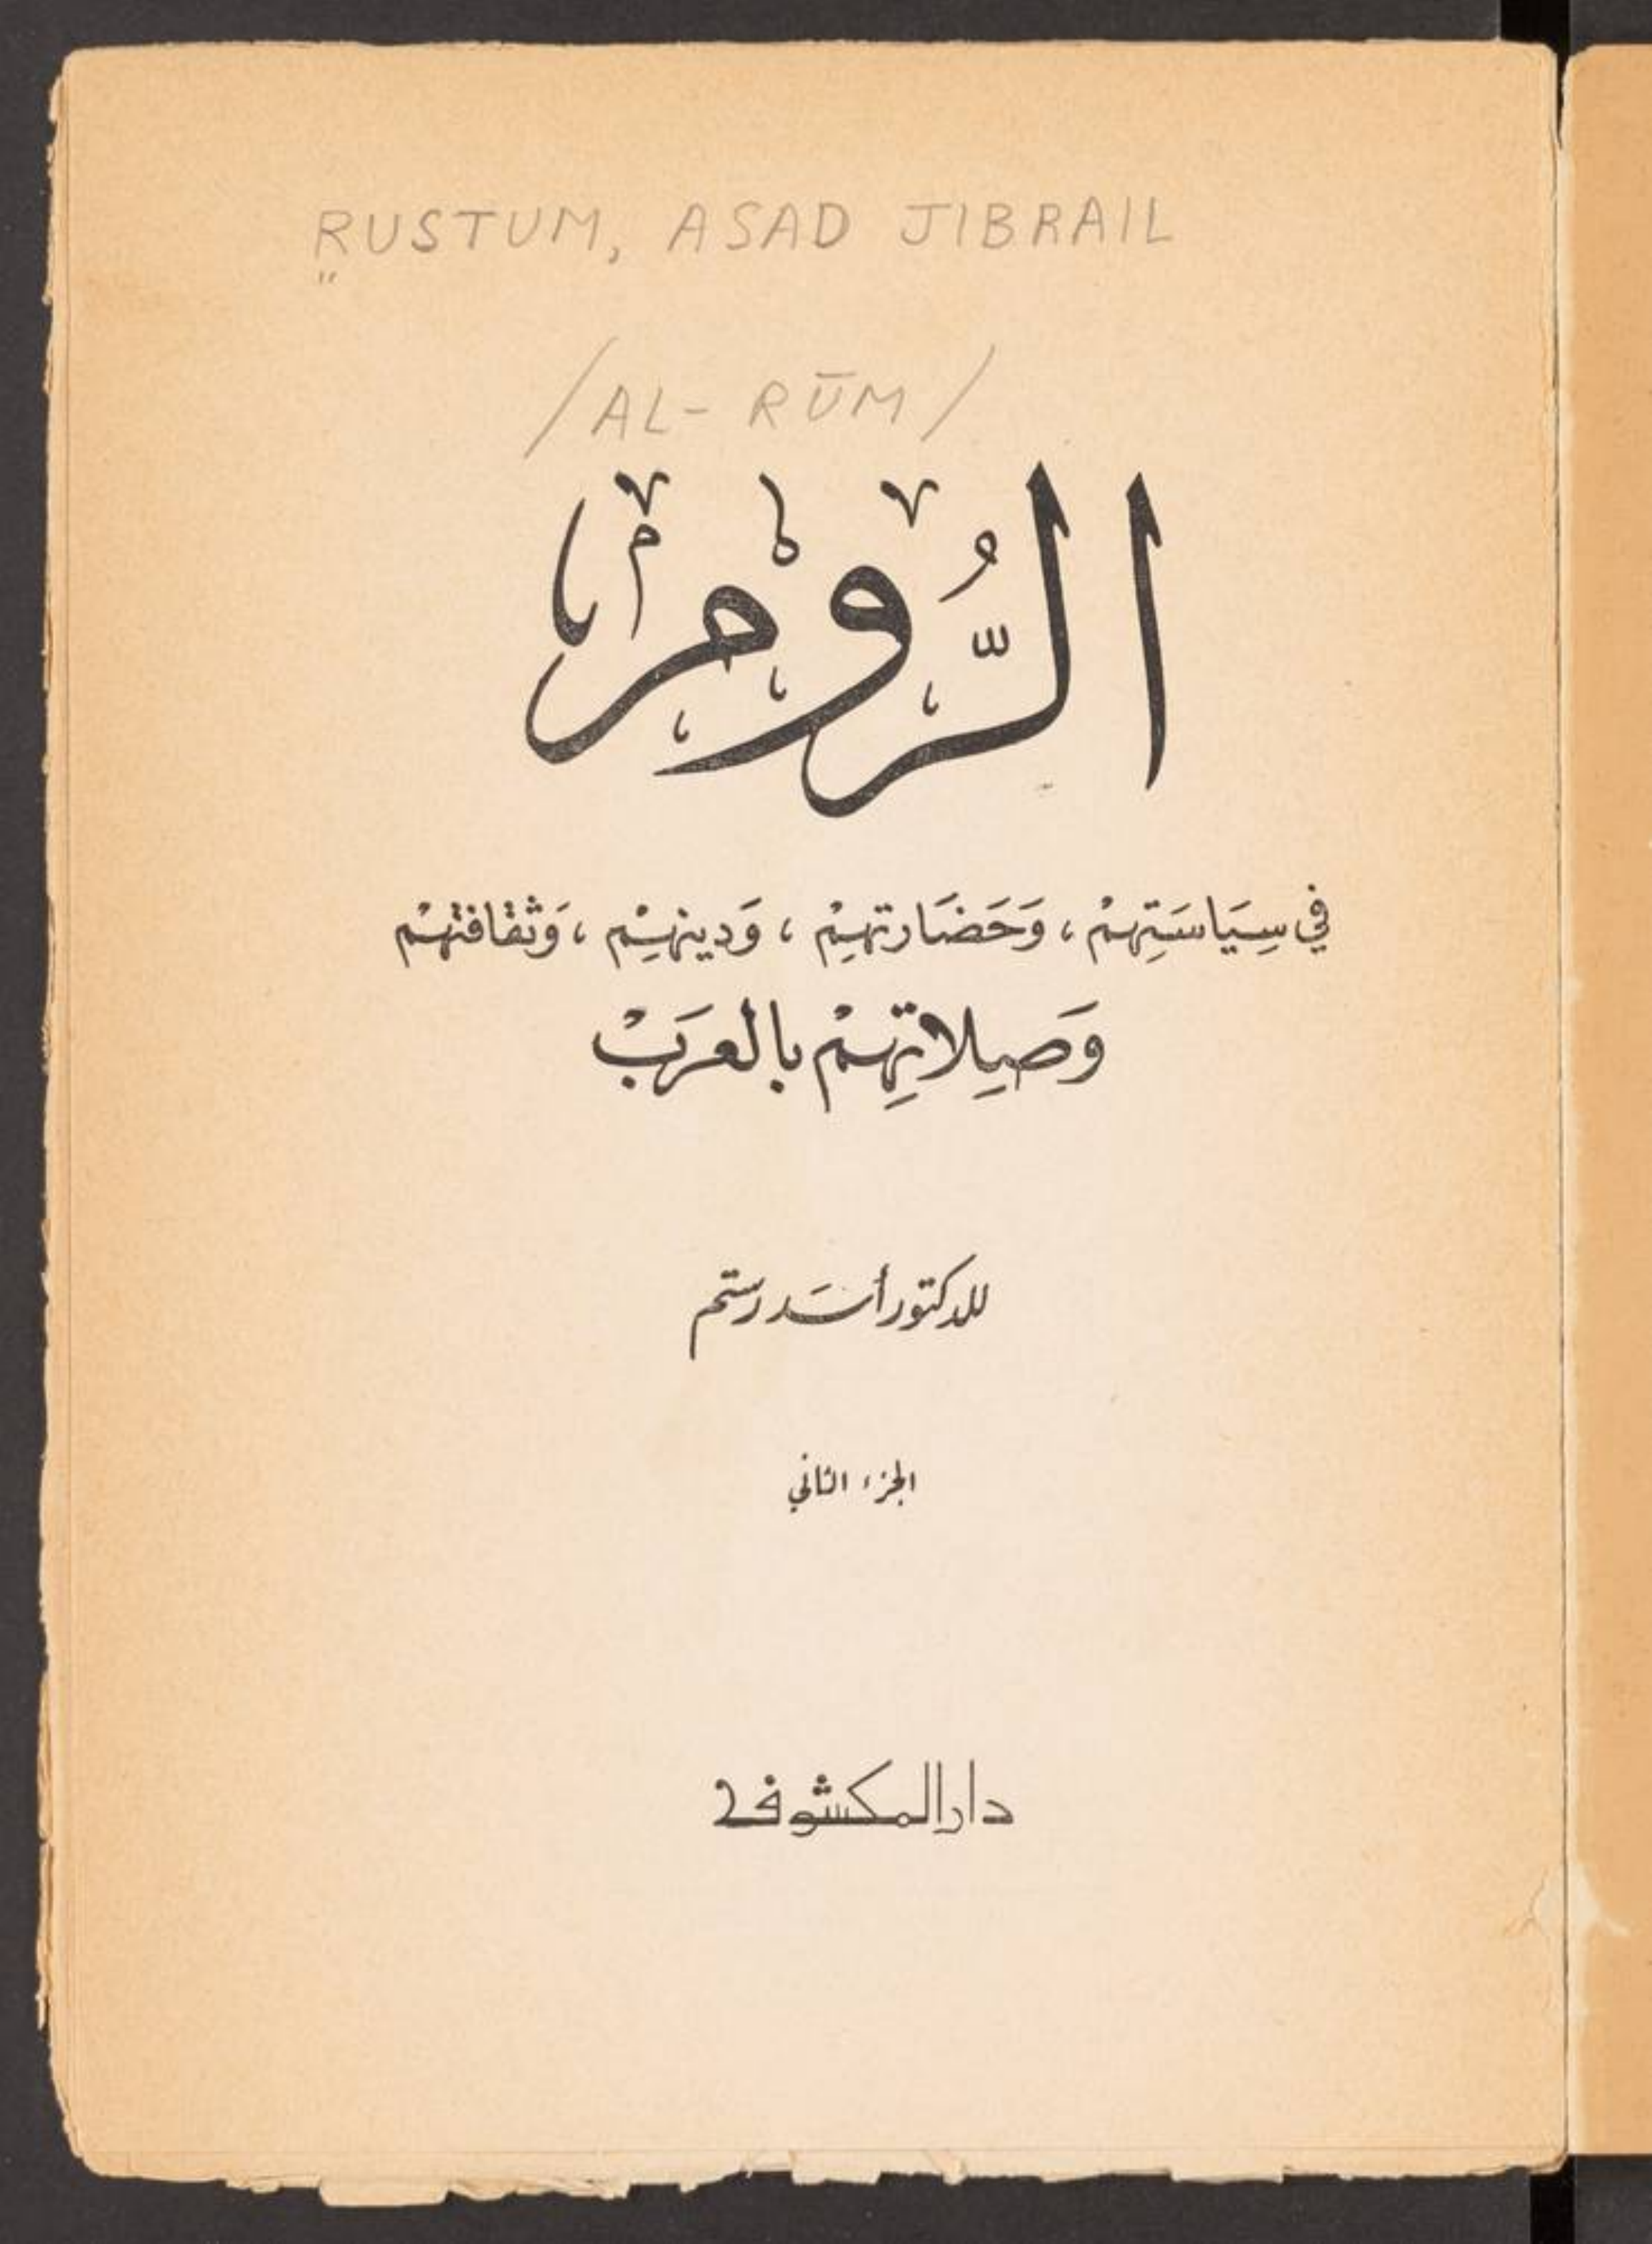 RUSTUM, ASAD JIBRAIL
/AL-RŪM/
الرُّوْم
في سِيَاسَتِهِمْ ، وَحَضَارتهِمْ ، وَدينهِمْ ، وَثقافتهمْ
وَصِلاتِهمْ بالعَرَبْ
للدكتور أسَد رستم
الجزء الثاني
دار المكشوف